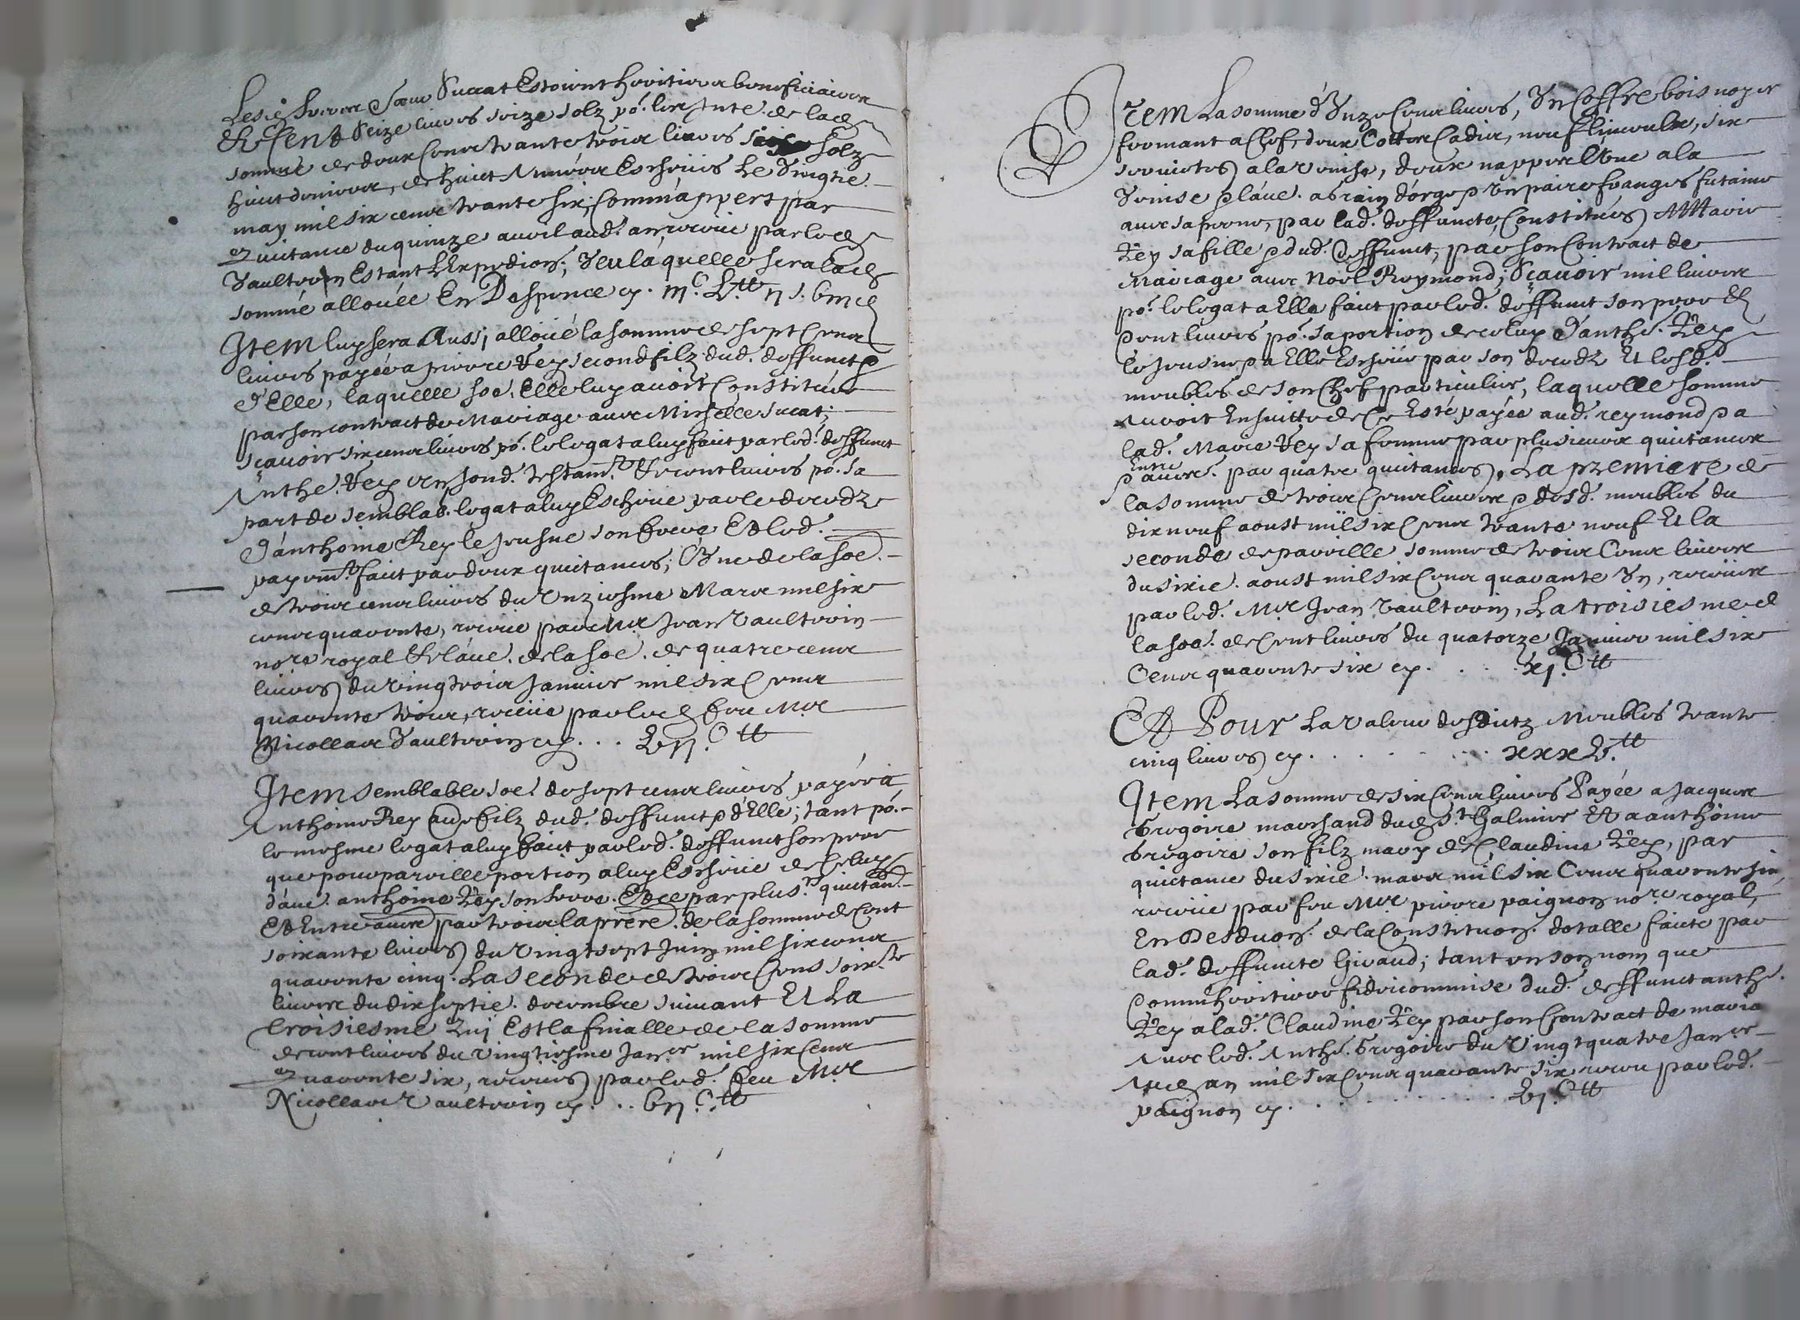 Lesd. frere soeur Sucrat Estoient heritiers beneficiaires
Et cent Seize livres seize solz po.r lintrest de lad.
somme de deux Cens trante trois livres solz
huict deniers, de huict Années Escheües Le vingtie.
may mil six cens trante six, Comm'appert par
quitance du quinze avril aud. an receüe par led.
Vaultrin Estant L'Expedion; Veu laquelle sera lad.
somme allouée En Despence cy.
Item luy sera Aussi alloué la somme de sept Cens
livres payée a pierre Rey second filz dud. deffunct
d'Elle, laquelle soe. Elle luy avoit Constituée
par son contract de Mariage avec Michelle Sucat;
sçavoir six cens livres po.r le legat a luy faict par led. deffunct
Anthe. Rey en sond. testam.t Et cent livres po.r sa
part de semblab. legat a luy Escheue par le decedz
d'anthoine Rey le Jeusne son frere Et led.
payem.t faict par deux quictances; L'Une de la soe.
de trois cens livres du Unziesme Mars mil six
cens quarente, receüe par Me Jean Vaultrin
no.re royal Et l'au.e de la soe. de quatre cens
livres du vingt trois Janvier mil six Cens
quarente trois, receüe par led. feu Me
Nicollas Vaultrin cy . . . vii.C tt
Item semblable soe. de sept cens livres payée a
Anthoine Rey au.e filz dud. deffunct & d'Elle; tant po.r
le mesme legat a luy faict par led. deffunct son pere
que pour pareille portion a luy Escheüe de Celuy
d'au.e anthoine Rey son frere. Et ce par plus.rs quictan.
Et Entre autre par trois la pre.re de la somme de Cent
soixante livres du vingt sept Juin mil six cens
quarente cinq. La seconde de trois Cens soix.te
livres du dix septie. decembre suivant Et La
troisiesme qui Est la finalle de la somme
de cent livres du vingtiesme Jan.er mil six Cens
quarente six, receues par led. feu Me
Nicollas Vaultrin cy . . . vii.C tt
Item La somme d'Unze Cens livres, Un Coffre bois noyer
fermant a Clef, deux Cottes Cadis, neuf linceulx, six
serviettes a la Venise, deux nappes l'Une a la
Venise l'au.e a grain d'orge Un paire franges futaine
avec sa frene, par lad. deffuncte Constituées A Marie
Rey sa fille & dud. deffunct, par son Contract de
Mariage avec Noel Reymond; Sçavoir mil livres
po.r le legat a Elle faict par led. deffunct son pere Et
Cent livres po.r sa portion de celuy d'anthe. Rey
le Jeusne a Elle Escheüe par son decedz Et lesd.
meubles de son Chef particulier, laquelle somme
Auroit Ensuitte de Ce Esté payée aud. reymond &a
lad. Marie Rey sa femme par plusieurs quictances
Entre autres. par quatre quictances, La premiere de
la somme de trois Cens livres & desd. meubles du
dix neuf aoust mil six Cens trante neuf Et la
seconde de pareille somme de trois Cens livres
du sixie. aoust mil six Cens quarante Un, receües
par led. Me Jean Vaultrin, La troisiesme de
la soe. de Cent livres du quatorze Janvier mil six
Cens quarente six cy . . . xi.C tt
Et Pour La valeur desdictz Meubles trante
cinq livres cy . . . xxxv.tt
Item La somme de six Cens livres Payée a Jacques
Gregoire marchand dud. St Galmier Et a anthoine
Gregoire son filz mary de Claudine Rey, par
quictance du sixie. mars mil six Cens quarente six
receüe par feu Me pierre paignon no.re royal,
En Desduon. de la Constituon. dotalle faicte par
lad. deffuncte Giraud; tant en son nom que
Comm'heritiere fideicommise dud. deffunct anthe.
Rey a lad. Claudine Rey par son Contract de maria.
Avec led. Anthe. Gregoire du vingt quatre Jan.er
Aud. an mil six Cens quarante six receu par led.
paignon cy . . . vi.C tt